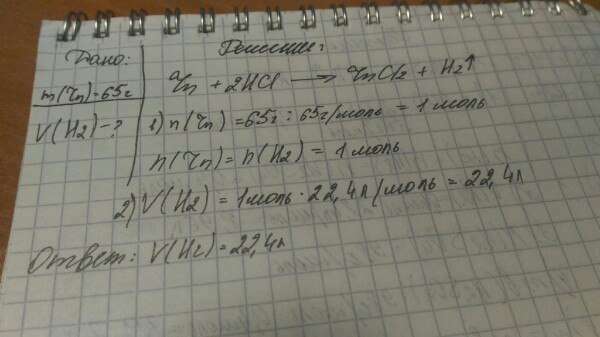 Дано:
m(Zn)=65г
V(H₂)-?
Решение:
Zn + 2HCl → ZnCl₂ + H₂↑
1) n(Zn) = 65г : 65г/моль = 1 моль
n(Zn) = n(H₂) = 1 моль
2) V(H₂) = 1 моль · 22,4 л/моль = 22,4 л
Ответ: V(H₂) = 22,4 л